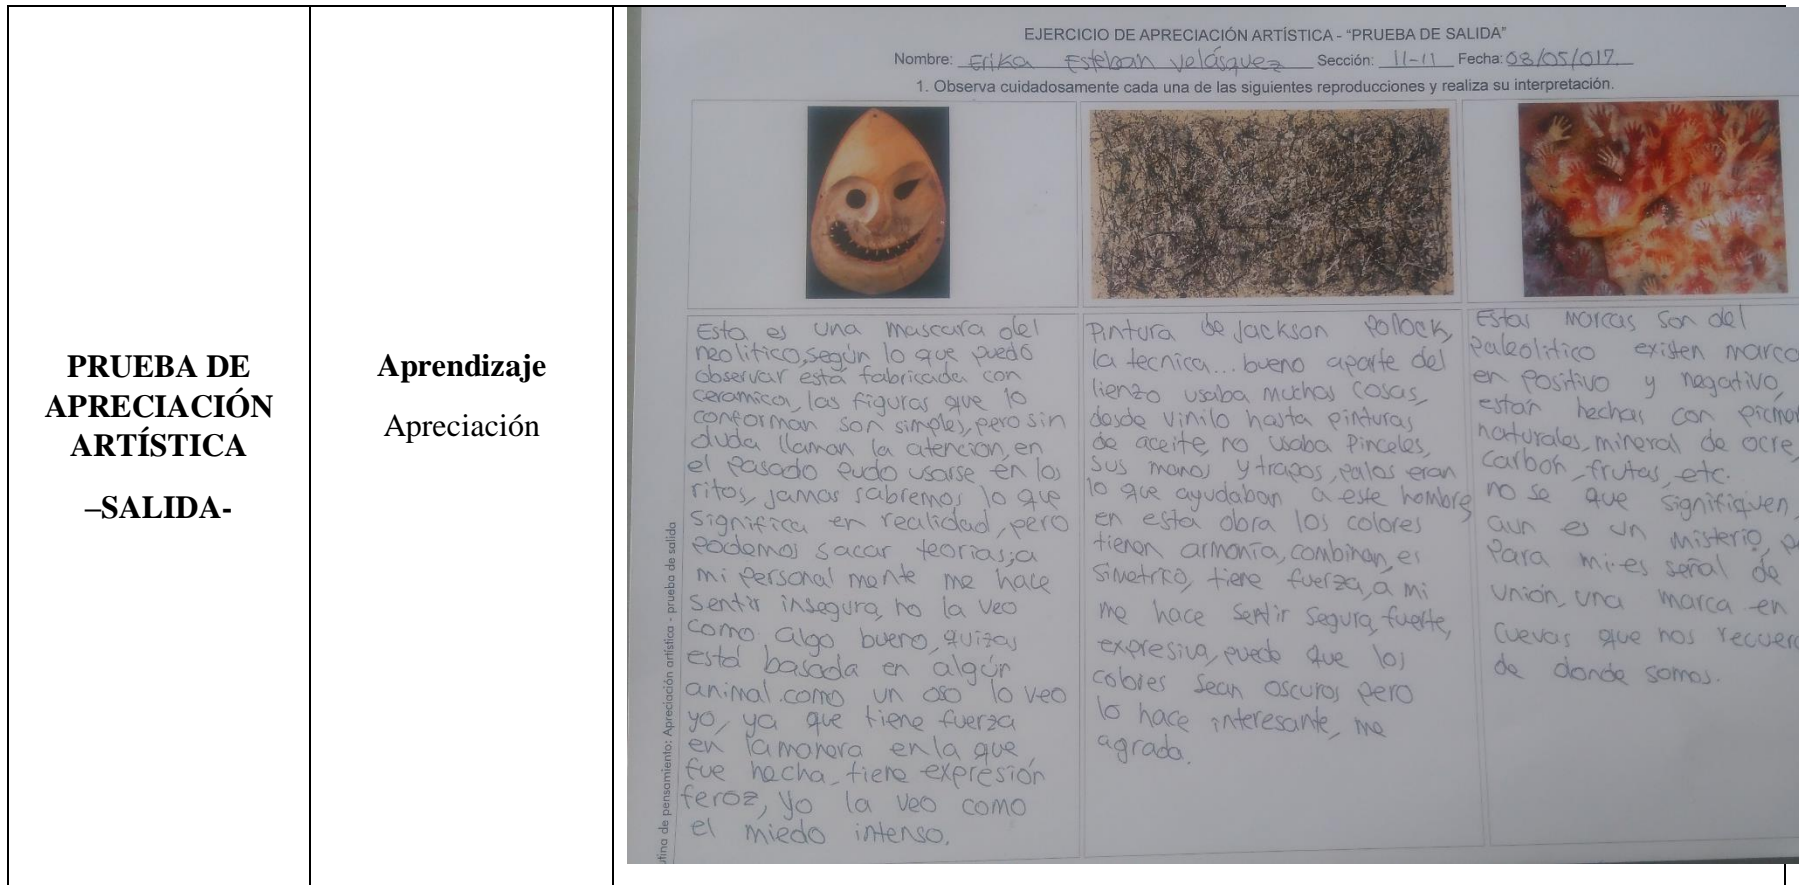 PRUEBA DE
APRECIACIÓN
ARTÍSTICA
–SALIDA-
Aprendizaje
Apreciación
EJERCICIO DE APRECIACIÓN ARTÍSTICA - “PRUEBA DE SALIDA”
Nombre: Erika Esteban Velásquez Sección: 11-11 Fecha: 03/05/017.
1. Observa cuidadosamente cada una de las siguientes reproducciones y realiza su interpretación.
Esta es una mascara del
neolitico, según lo que puedo
observar está fabricada con
ceramica, las figuras que lo
conforman son simples, pero sin
duda llaman la atención, en
el pasado pudo usarse en los
ritos, jamas sabremos lo que
significa en realidad, pero
podemos sacar teorias; a
mi personal mente me hace
sentir insegura, no la veo
como algo bueno, quizas
está basada en algún
animal como un oso lo veo
yo, ya que tiene fuerza
en la manera en la que
fue hecha, tiene expresión
feroz, yo la veo como
el miedo intenso.
Pintura de Jackson Pollock,
la tecnica... bueno aparte del
lienzo usaba muchas cosas,
desde vinilo hasta pinturas
de aceite, no usaba pinceles,
sus manos y trapos, palos eran
lo que ayudaban a este hombre,
en esta obra los colores
tienen armonía, combinan, es
simetrico, tiene fuerza, a mi
me hace sentir segura, fuerte,
expresiva, puede que los
colores sean oscuros pero
lo hace interesante, me
agrada.
Estas marcas son del
paleolitico existen marca
en positivo y negativo,
están hechas con picmen
naturales, mineral de ocre,
carbón, frutas, etc.
no se que signifiquen,
aun es un misterio, p
para mi es señal de
unión, una marca en
cuevas que nos recuer
de donde somos.
utina de pensamiento: Apreciación artística - prueba de salida